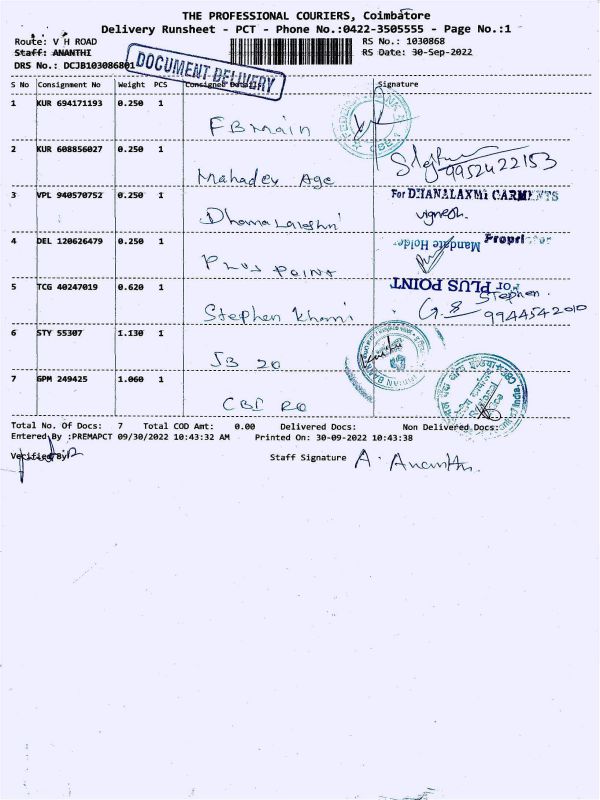 THE PROFESSIONAL COURIERS, Coimbatore
Delivery Runsheet - PCT - Phone No.:0422-3505555 - Page No.:1
Route: V H ROAD
RS No.: 1030868
Staff: ANANTHI
RS Date: 30-Sep-2022
DRS No.: DCJB103086801
DOCUMENT DELIVERY
S No Consignment No Weight PCS Consignee Details Signature
1 KUR 694171193 0.250 1 FB Main
2 KUR 608856027 0.250 1 Mahadev Age
9952422153
3 VPL 940570752 0.250 1 Dhanalakshmi
For DHANALAXMI GARMENTS
Vignesh.
Proprietor
4 DEL 120626479 0.250 1 PLUS POINT
Mandate Holder
For PLUS POINT
5 TCG 40247019 0.620 1 Stephen Khani
Stephen.
9944542010
6 STY 55307 1.130 1 JB 20
7 GPM 249425 1.060 1 CBI RO
Total No. Of Docs: 7 Total COD Amt: 0.00 Delivered Docs: Non Delivered Docs:
Entered By :PREMAPCT 09/30/2022 10:43:32 AM Printed On: 30-09-2022 10:43:38
Verified By
Staff Signature A. Ananthi.